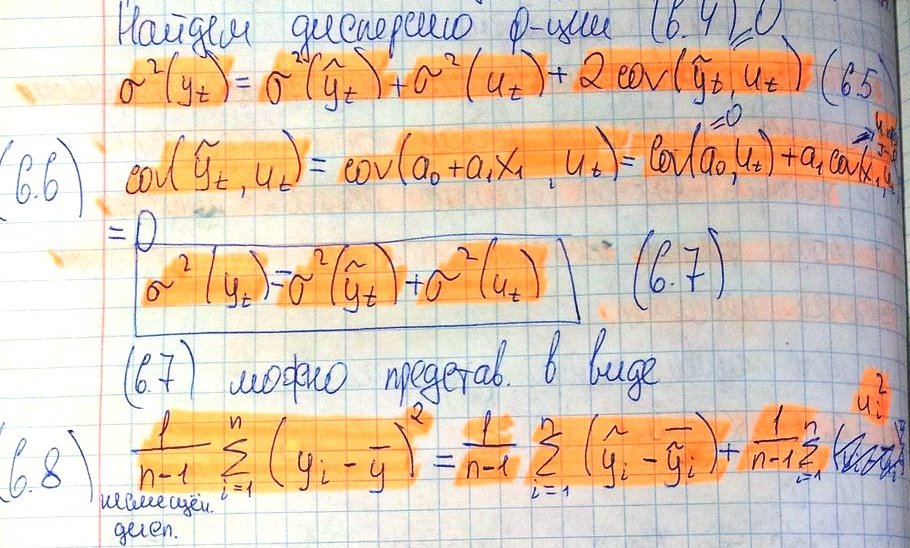 Найдем дисперсию ф-ции (6.4)
σ²(y_t) = σ²(ỹ_t) + σ²(u_t) + 2 cov(ỹ_t, u_t) (6.5
=0
(6.6) cov(ỹ_t, u_t) = cov(a₀ + a₁x₁, u_t) = cov(a₀, u_t) + a₁cov(x₁, u
=0
= 0
σ²(y_t) = σ²(ỹ_t) + σ²(u_t) (6.7)
(6.7) можно представ. в виде
(6.8) 1/(n-1) Σ_{i=1}^{n} (y_i - ȳ)² = 1/(n-1) Σ_{i=1}^{n} (ỹ_i - ỹ̄_i) + 1/(n-1) Σ_{i=1}^{n} u_i²
несмещён.
дисп.